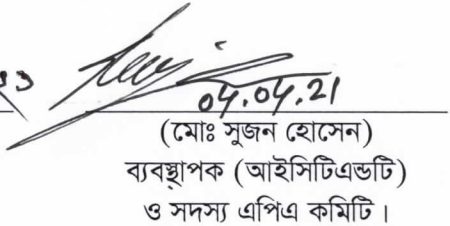 04.04.21
(মোঃ সুজন হোসেন)
ব্যবস্থাপক (আইসিটিএন্ডটি)
ও সদস্য এপিএ কমিটি।